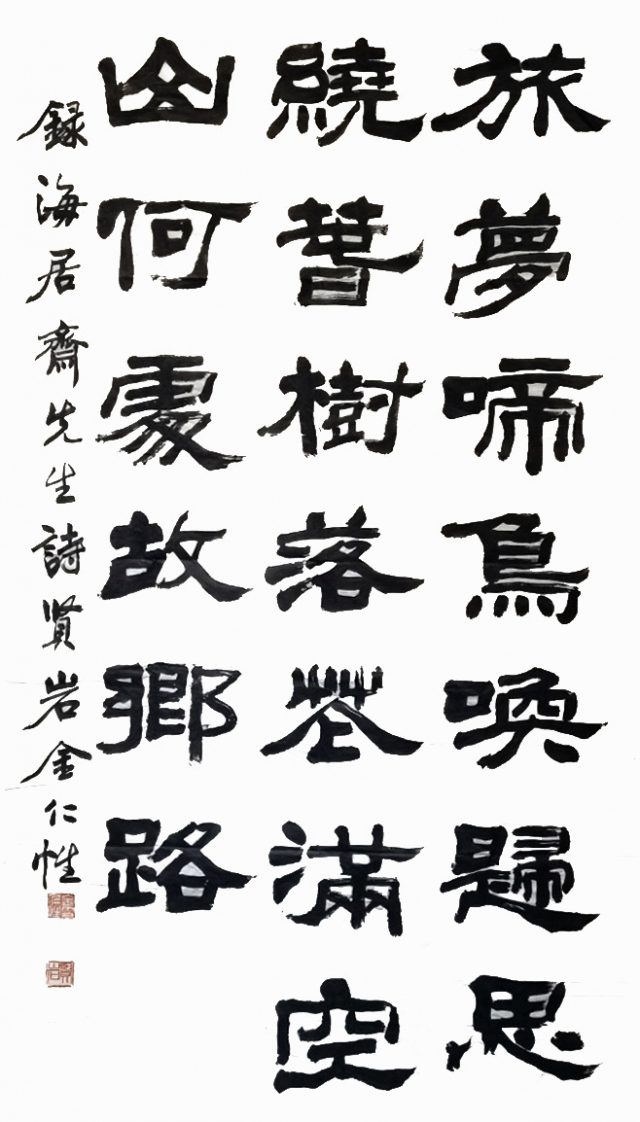 旅夢啼鳥喚歸思
繞春樹落花滿空
山何處故鄉路
録海居齋先生詩賢岩金仁惟